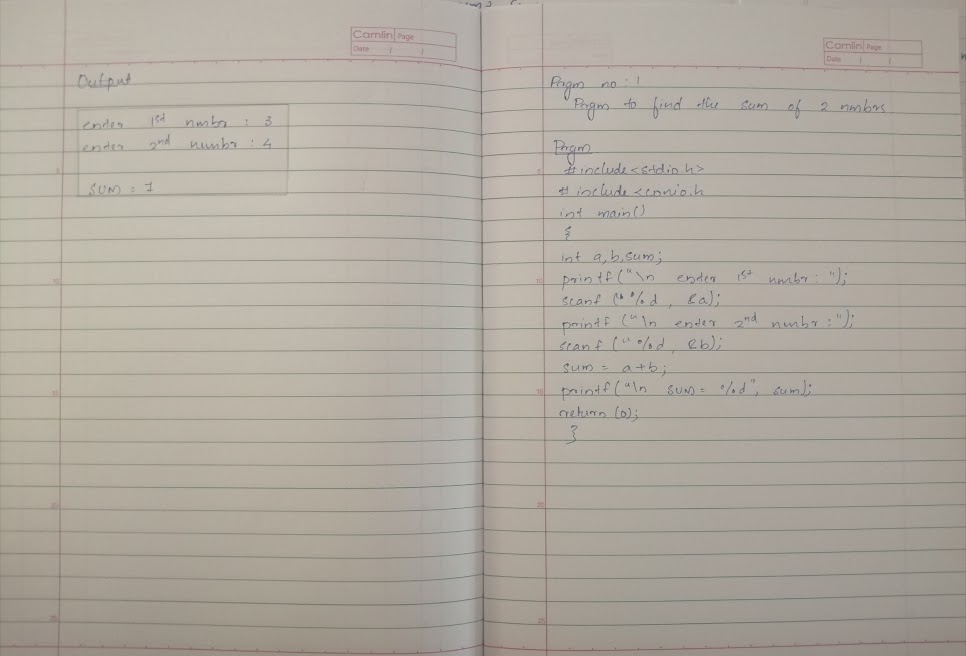 Camlin Page
Date / /
Output
ender 1st nmbr : 3
ender 2nd numbr : 4
SUM = 7
Camlin Page
Date / /
Prgm no : 1
Prgm to find the sum of 2 nmbrs
Prgm
# include <stdio.h>
# include <conio.h
int main()
{
int a,b,sum;
printf ("\n ender 1st nmbr : ");
scanf ("%d , &a);
printf ("\n ender 2nd numbr :");
scanf ("%d , &b);
sum = a+b;
printf ("\n SUM = %d", sum);
return (0);
}